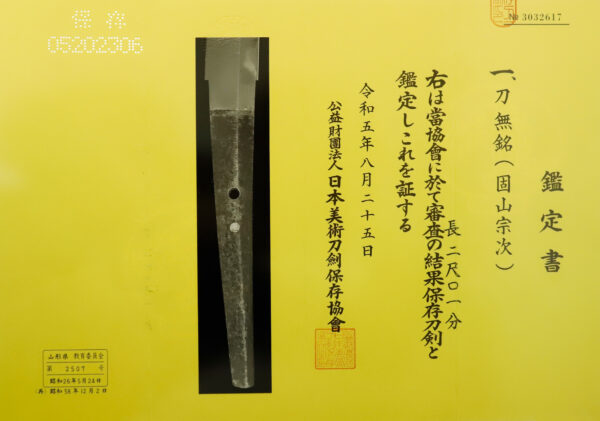 保存
05202306
№ 3032617
鑑定書
一、刀 無銘(固山宗次)
長 二尺〇一分
右は當協會に於て審査の結果保存刀剣と
鑑定しこれを証する
令和五年八月二十五日
公益財團法人 日本美術刀劍保存協會
山形県 教育委員会
第 2507 号
昭和26年5月24日
(再) 昭和58年12月2日